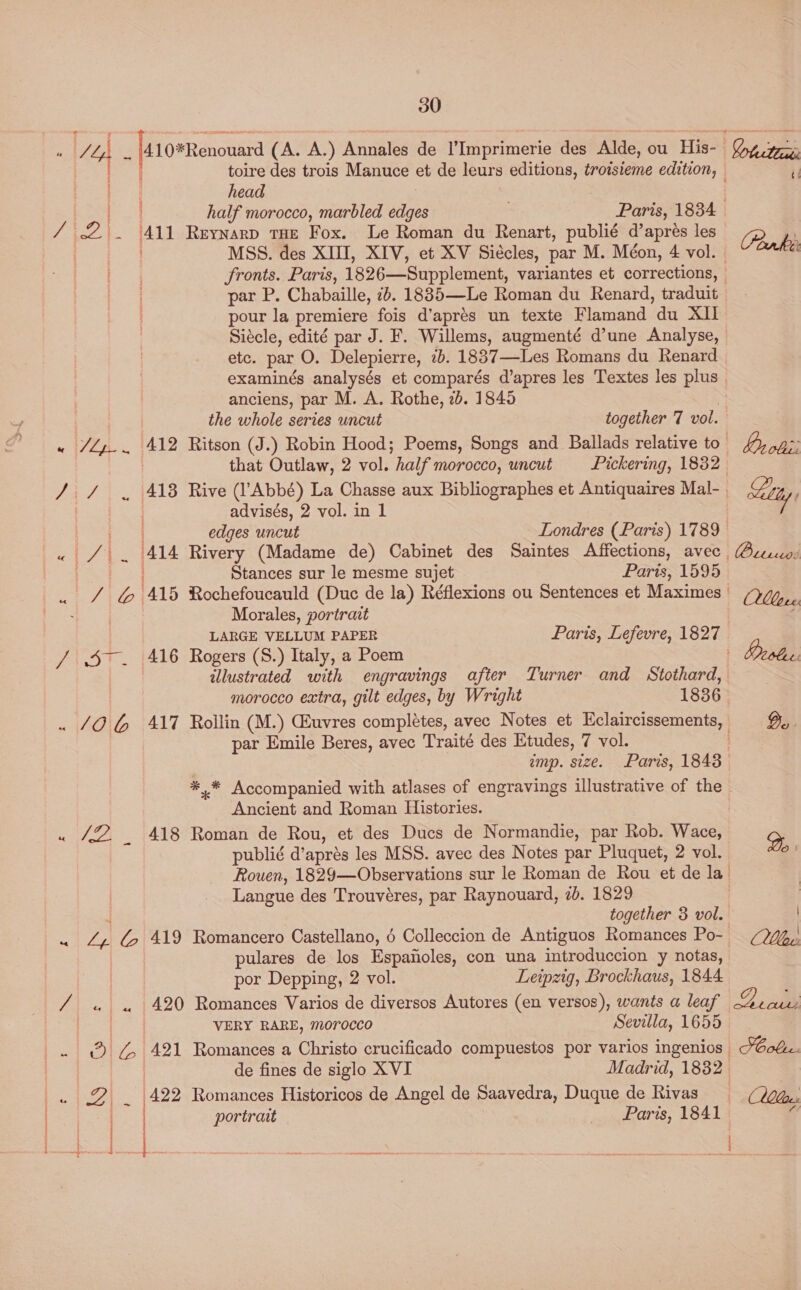 30
" 14 - 410*Renouard (A. A.) Annales de l'Imprimerie des Alde, ou His-
toire des trois Manuce et de leurs editions, troisieme edition,
head
half morocco, marbled edges Paris, 1834
1 2 - 411 REYNARD THE FOX. Le Roman du Renart, publié d'après les
MSS. des XIII, XIV, et XV Siècles, par M. Méon, 4 vol.
fronts. Paris, 1826—Supplement, variantes et corrections,
par P. Chabaille, ib. 1835—Le Roman du Renard, traduit
pour la premiere fois d'après un texte Flamand du XII
Siècle, edité par J. F. Willems, augmenté d'une Analyse,
etc. par O. Delepierre, ib. 1837—Les Romans du Renard
examinés analysés et comparés d'apres les Textes les plus
anciens, par M. A. Rothe, ib. 1845
the whole series uncut together 7 vol.
" 14 - 412 Ritson (J.) Robin Hood; Poems, Songs and Ballads relative to
that Outlaw, 2 vol. half morocco, uncut Pickering, 1832
1 1 - 413 Rive (l'Abbé) La Chasse aux Bibliographes et Antiquaires Mal- Lilly
advisés, 2 vol. in 1
edges uncut Londres (Paris) 1789
" 1 - 414 Rivery (Madame de) Cabinet des Saintes Affections, avec
Stances sur le mesme sujet Paris, 1595
" 1 6 415 Rochefoucauld (Duc de la) Réflexions ou Sentences et Maximes
Morales, portrait
LARGE VELLUM PAPER Paris, Lefevre, 1827
1 5 - 416 Rogers (S.) Italy, a Poem
illustrated with engravings after Turner and Stothard,
morocco extra, gilt edges, by Wright 1836
" 10 6 417 Rollin (M.) Œuvres complètes, avec Notes et Eclaircissements, Do.
par Emile Beres, avec Traité des Etudes, 7 vol.
imp. size. Paris, 1843
*** Accompanied with atlases of engravings illustrative of the
Ancient and Roman Histories.
" 12 - 418 Roman de Rou, et des Ducs de Normandie, par Rob. Wace, Do.
publié d'après les MSS. avec des Notes par Pluquet, 2 vol.
Rouen, 1829—Observations sur le Roman de Rou et de la
Langue des Trouvères, par Raynouard, ib. 1829
together 3 vol.
" 4 6 419 Romancero Castellano, ó Colleccion de Antiguos Romances Po-
pulares de los Españoles, con una introduccion y notas,
por Depping, 2 vol. Leipzig, Brockhaus, 1844
1 " " 420 Romances Varios de diversos Autores (en versos), wants a leaf
VERY RARE, morocco Sevilla, 1655
" 3 6 421 Romances a Christo crucificado compuestos por varios ingenios
de fines de siglo XVI Madrid, 1832
" 2 - 422 Romances Historicos de Angel de Saavedra, Duque de Rivas
portrait Paris, 1841